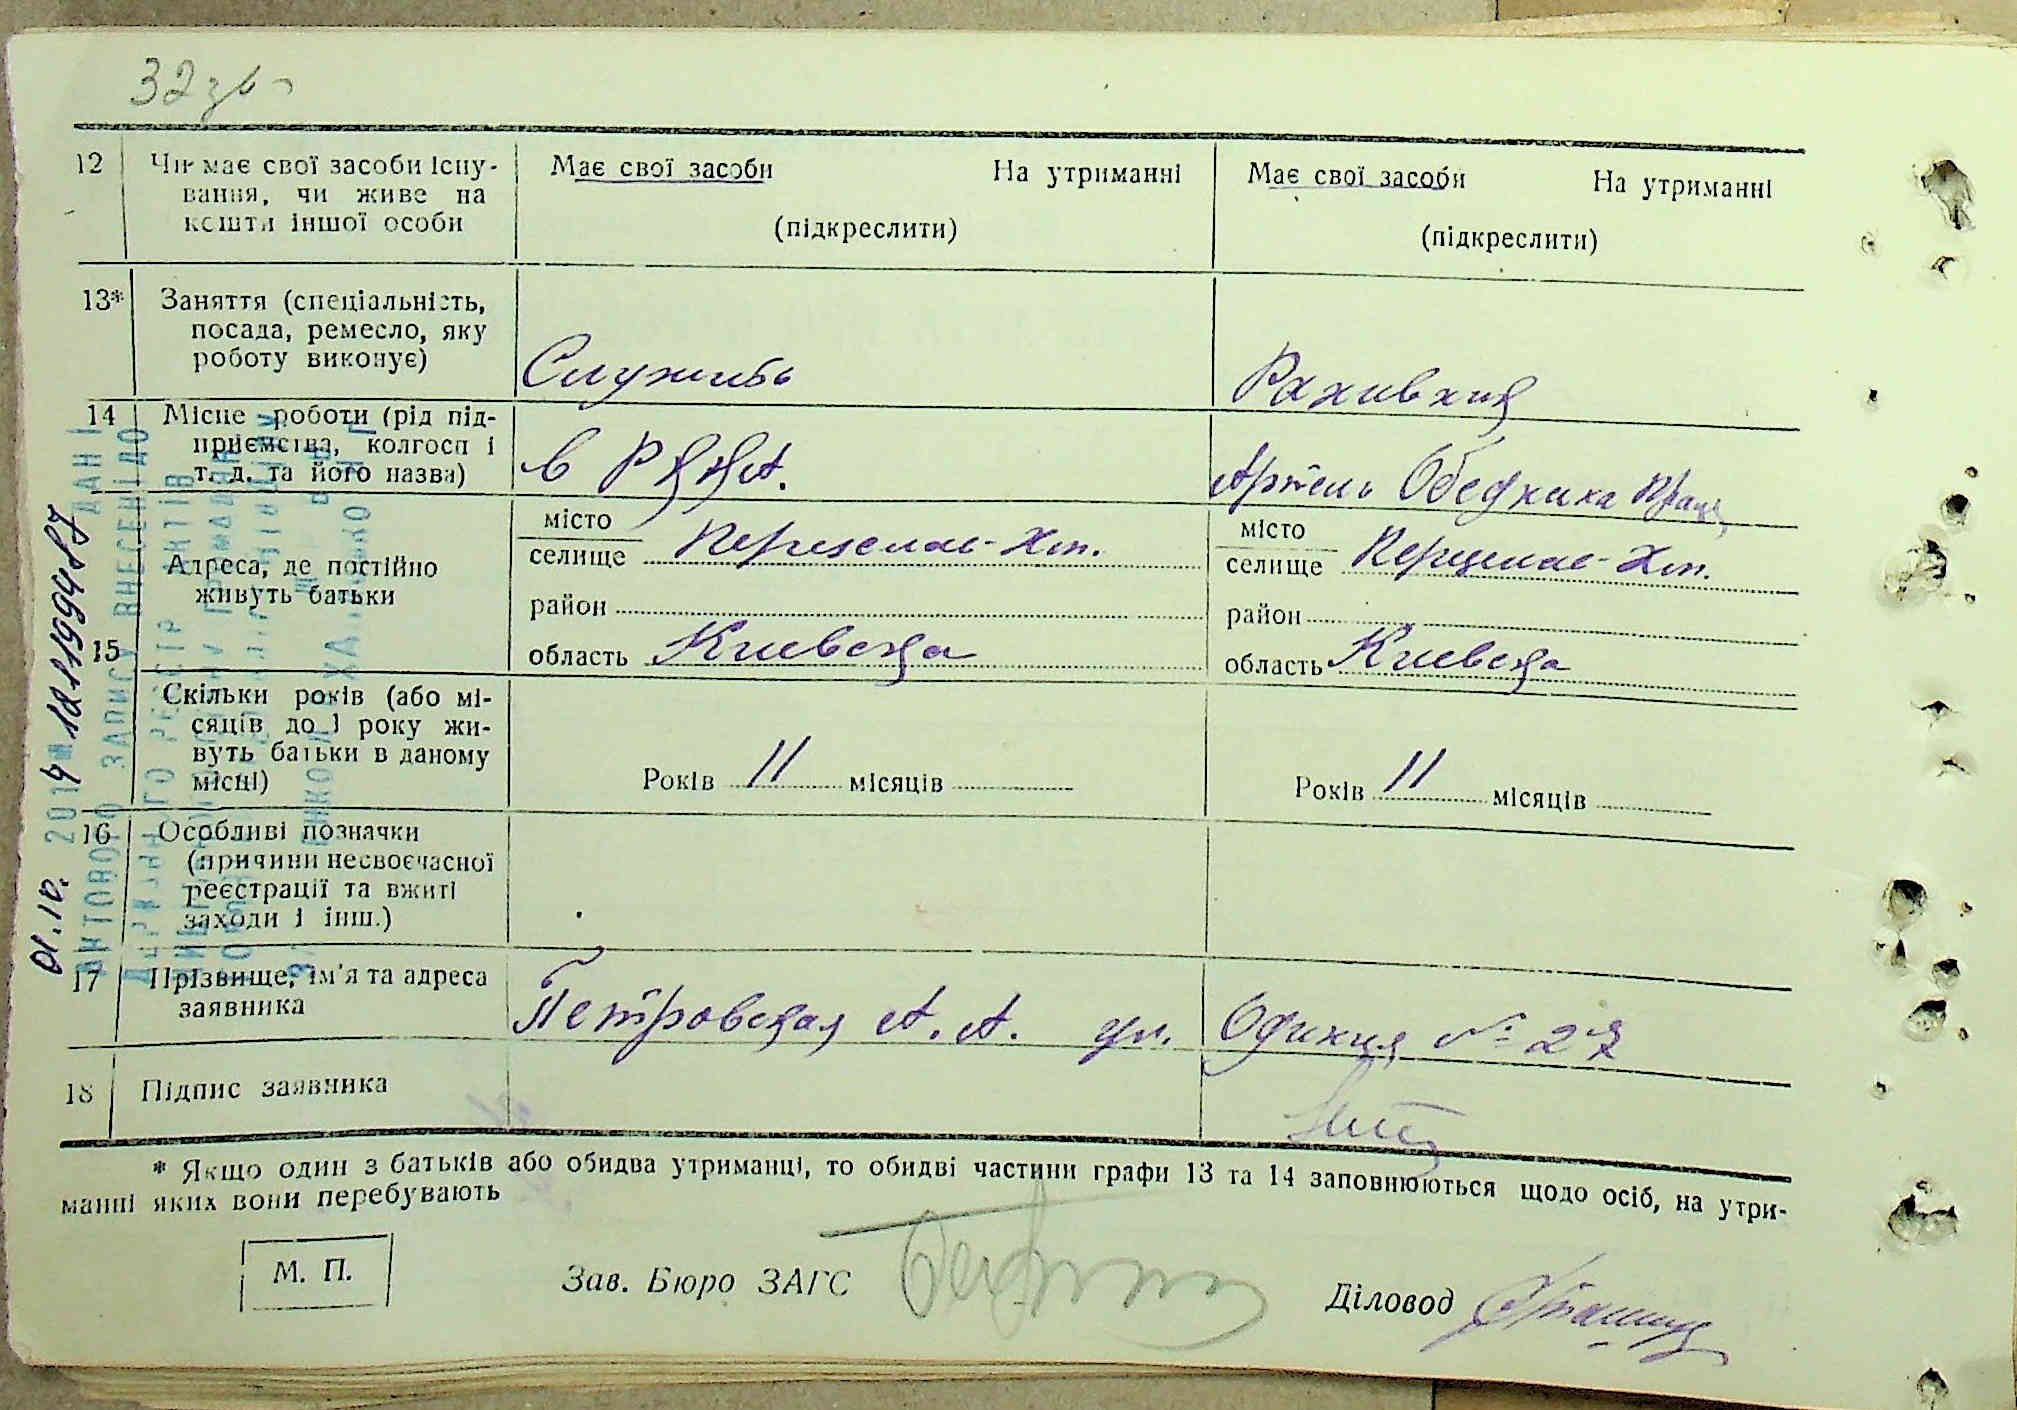 32зв
12 Чи має свої засоби існу-
вання, чи живе на
кошти іншої особи
Має свої засоби На утриманні
(підкреслити)
Має свої засоби На утриманні
(підкреслити)
13* Заняття (спеціальність,
посада, ремесло, яку
роботу виконує)
Служить
Рахивник
14 Місце роботи (рід під-
приємства, колгосп і
т. д. та його назва)
в РККА.
Артель Обеднана Праця
15 Адреса, де постійно
живуть батьки
місто
селище Переяслав-Хм.
район
область Киевска
місто
селище Переяслав-Хм.
район
область Киевска
Скільки років (або мі-
сяців до 1 року жи-
вуть батьки в даному
місці)
Років 11 місяців
Років 11 місяців
16 Особливі позначки
(причини несвоєчасної
реєстрації та вжиті
заходи і інш.)
17 Прізвище, ім'я та адреса
заявника
Петровская А. А. ул. Одинця № 27
18 Підпис заявника
* Якщо один з батьків або обидва утриманці, то обидві частини графи 13 та 14 заповнюються щодо осіб, на утри-
манні яких вони перебувають
М. П.
Зав. Бюро ЗАГС
Діловод
ДАНІ
АКТОВОГО ЗАПИСУ ВНЕСЕНІ ДО
01.10. 2014